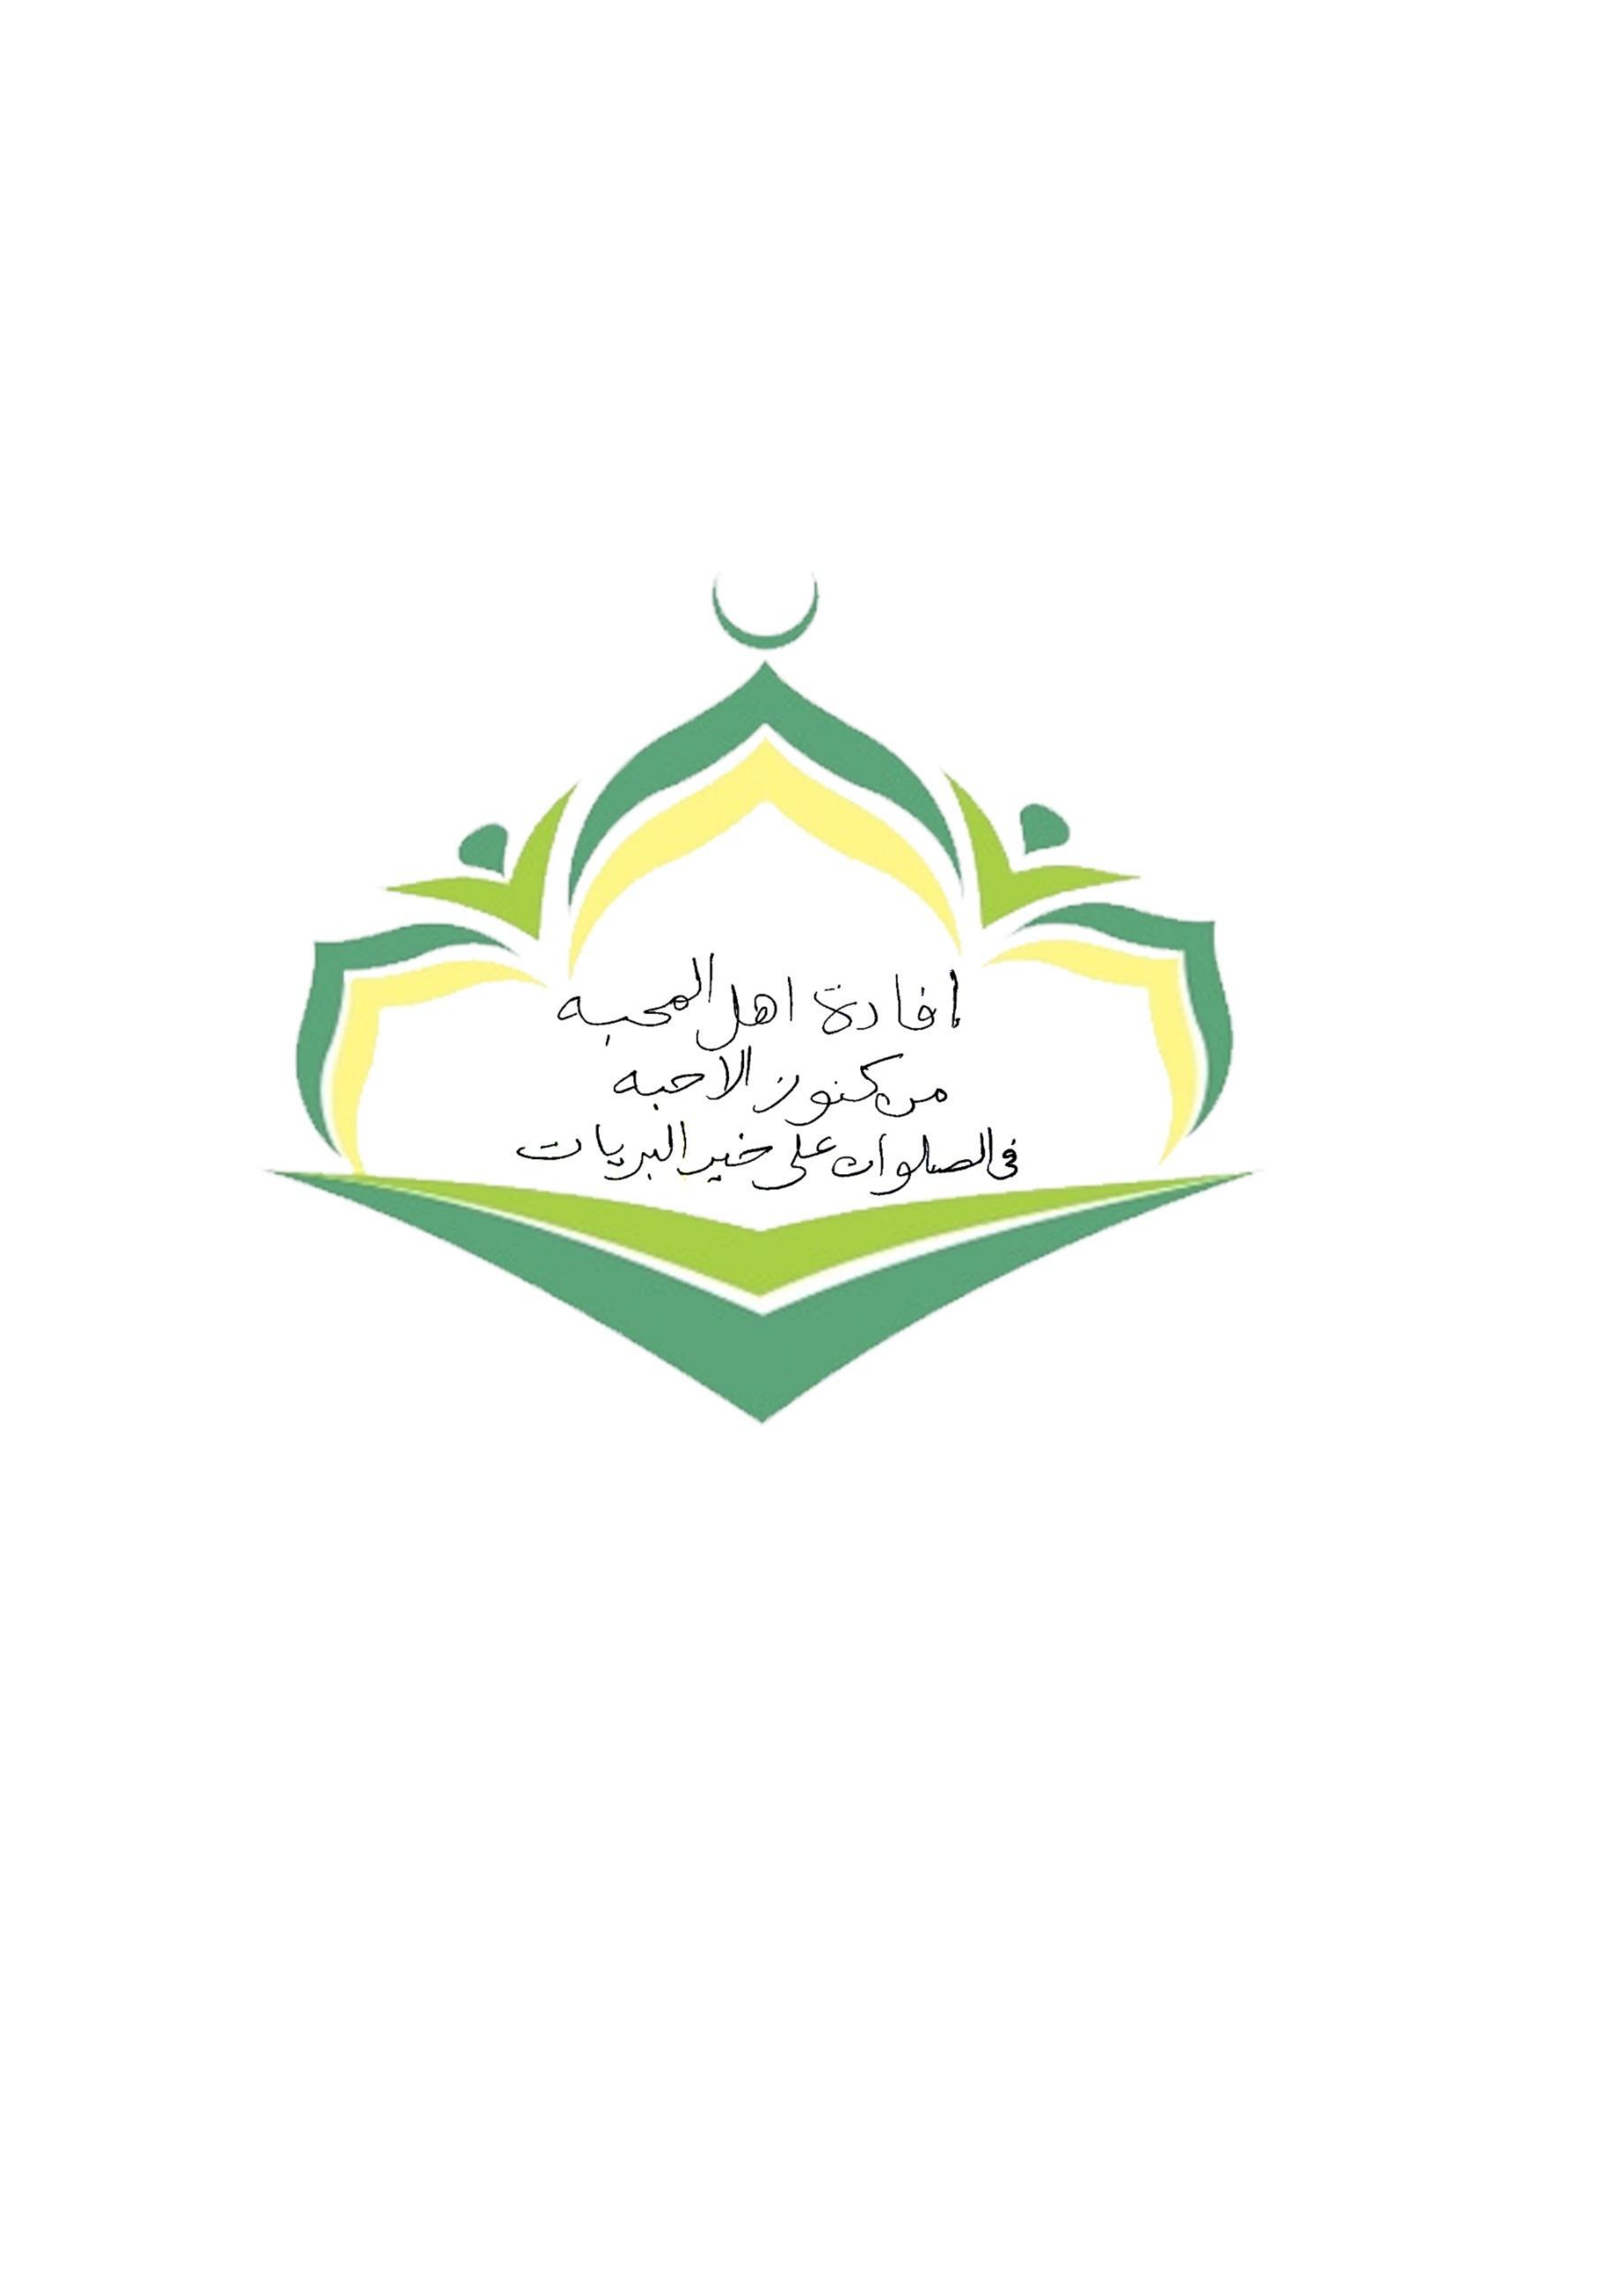 إفادة اهل المحبه
من كنوز الاحبه
فى الصلوات على خير البريات